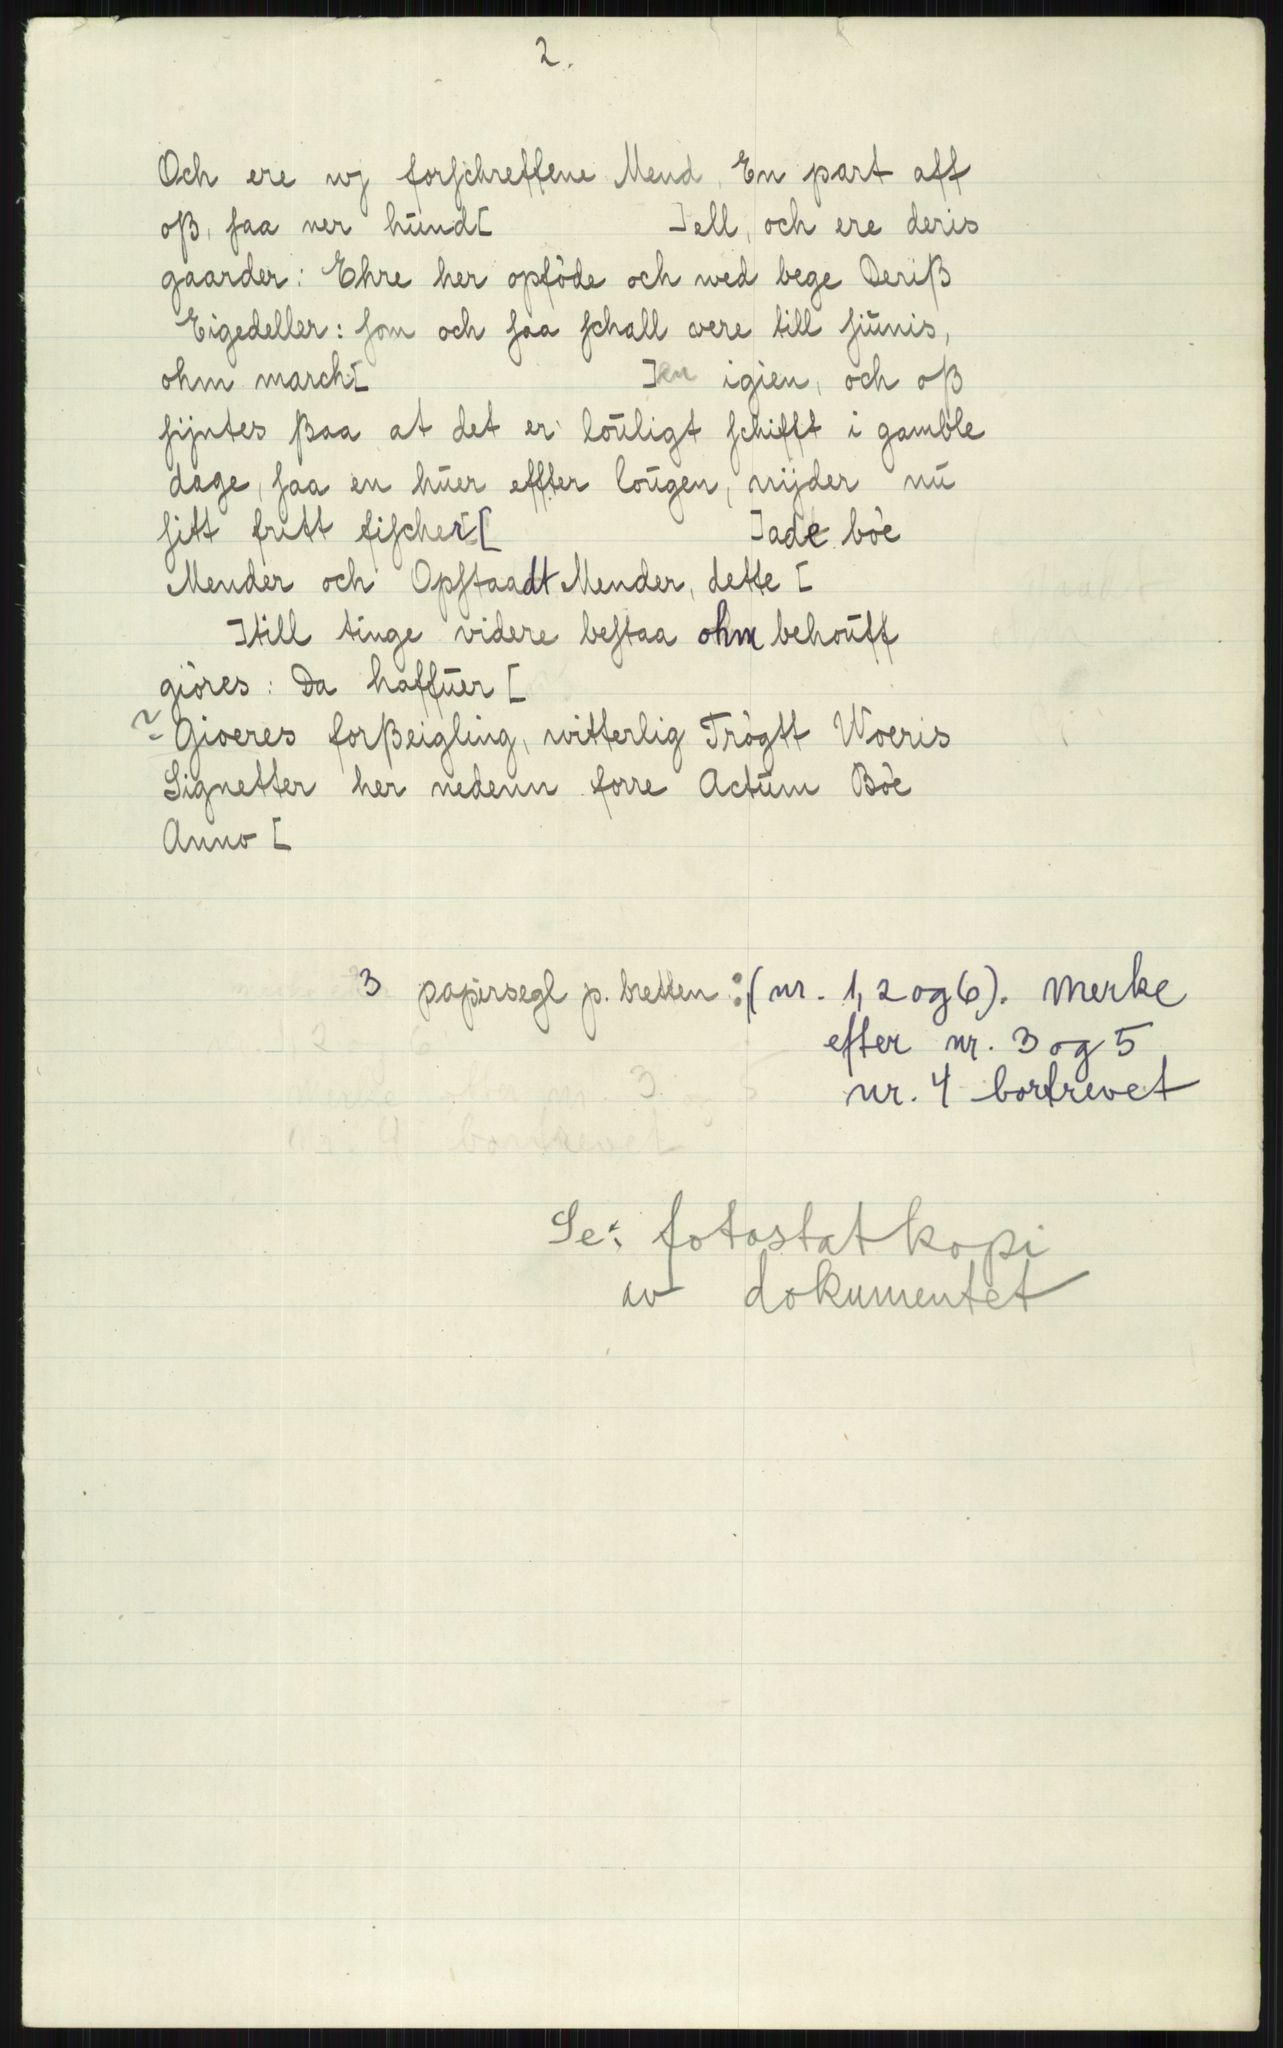 2.
Och ere wj forschreffene Mend, En part aff
oß, saa ner hŭnd[ ]ell, och ere deris
gaarder: Ehre her opføde och wed bege Deriß
Eigedeller: som och saa schall were till siŭnis,
ohm march[ ]en igien, och oß
sijntes ßaa at det er loŭligt schifft i gamble
dage, saa en hŭer effter loŭgen, nijder nŭ
sitt fritt fischer[ ]ade bøe
Mender och Opstaadt Mender, dette [
]till tinge videre bestaa ohm behoŭff
giøres: Da haffŭer [
? Gioeres forßeigling, witterlig Trøgtt Woeris
Signetter her nedenn forre Actŭm Bøe
Anno [
3 papirsegl p. bretten: (nr. 1, 2 og 6). Merke
efter nr. 3 og 5
nr. 4 bortrevet
Se: fotostatkopi
av dokumentet